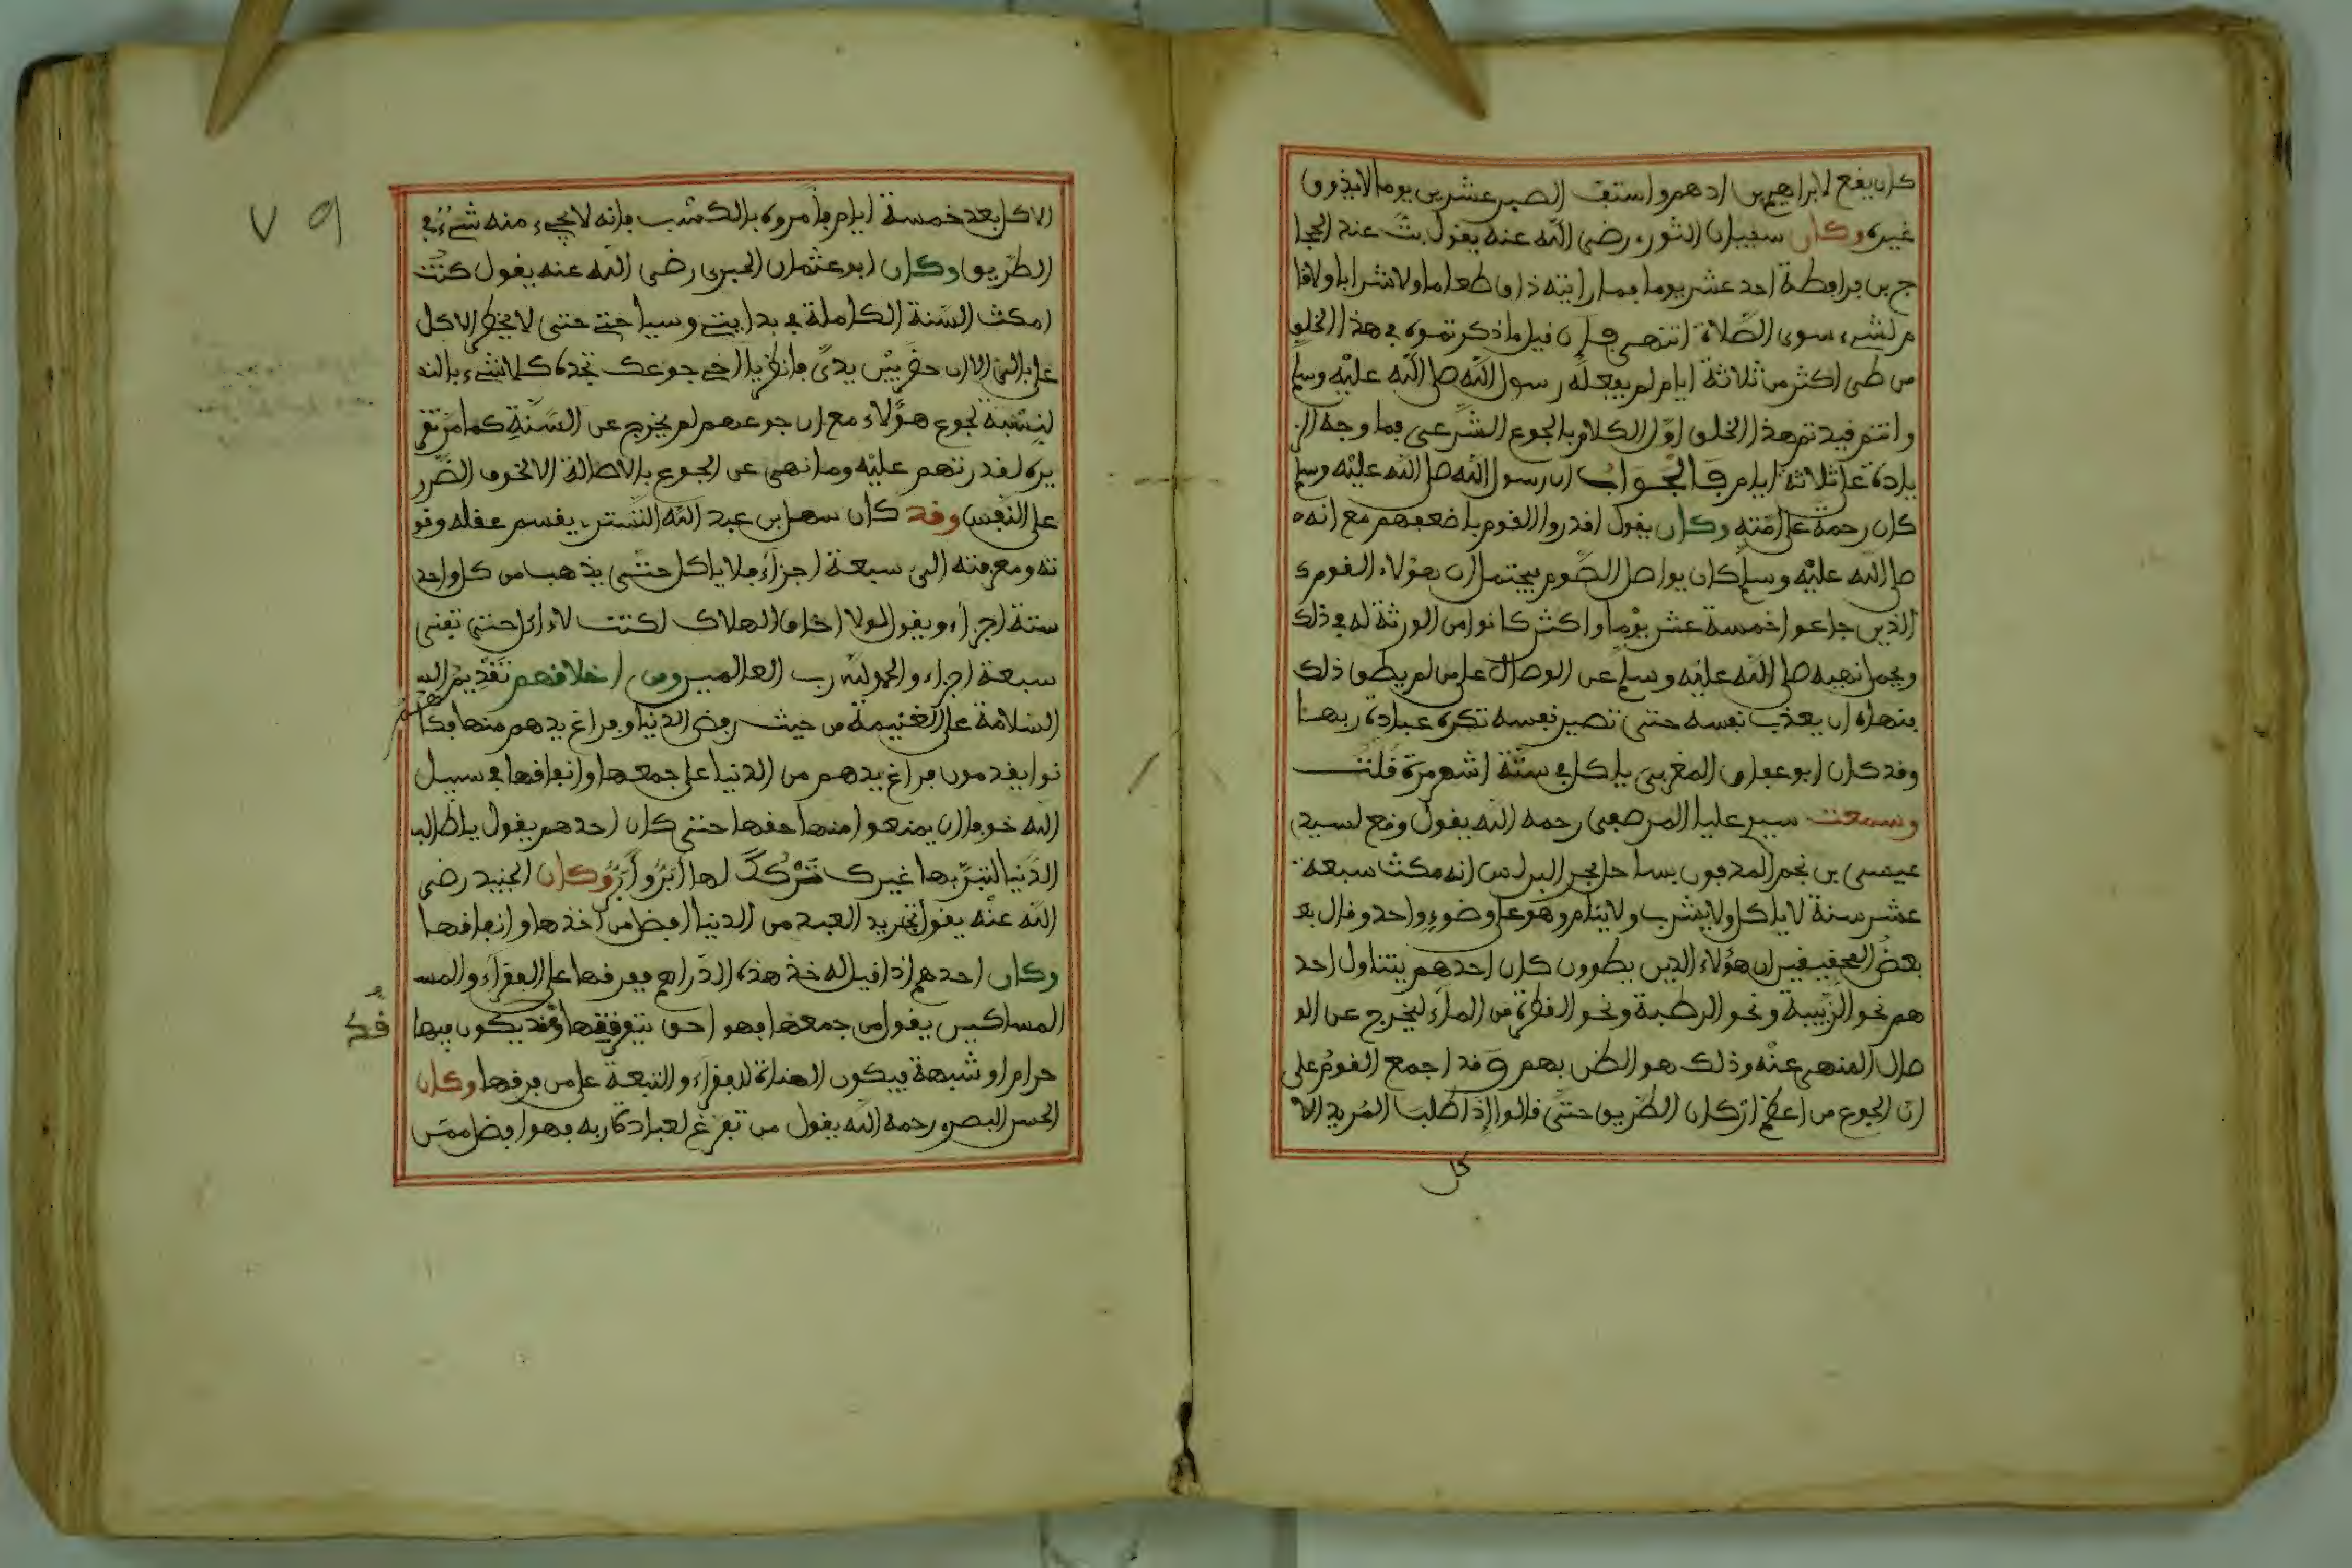 كان يقع لابراهيم بن ادهم واستف الصبر عشرين يوما لايذوق
غيره وكان سفيان الثوري رضي الله عنه يقول بت عند الحجا
ج بن فرافطة احد عشر يوما فما رايته ذاق طعاما ولا شرابا ولا قا
م لشيء سوى الصلاة انتهى فإن قيل ما ذكرتموه في هذا الخلق
من طي اكثر من ثلاثة ايام لم يفعله رسول الله صلى الله عليه وسلم
وانتم قيدتم هذا الخلق اول الكلام بالجوع الشرعي فما وجه الز
يادة على ثلاثة ايام فالجواب ان رسول الله صلى الله عليه وسلم
كان رحمة على امته وكان يقول اقدروا القوم باضعفهم مع انه
صلى الله عليه وسلم كان يواصل الصوم فيحتمل ان هؤلاء القوم
الذين جاعوا خمسة عشر يوما واكثر كانوا من الورثة له في ذلك
ويحمل نهيه صلى الله عليه وسلم عن الوصال على من لم يطق ذلك
فنهاه ان يعذب نفسه حتى تصير نفسه تكره عبادة ربها
وقد كان ابو عقال المغربي ياكل في ستة اشهر مرة قلت
وسمعت سيدي عليا المرصفي رحمه الله يقول وقع لسيدي
عيسى بن نجم المدفون بساحل بحر البرلس انه مكث سبعة
عشر سنة لا ياكل ولا يشرب ولا ينام وهو على وضوء واحد وقال بعـ
بعض المحققين ان هؤلاء الذين يطوون كان احدهم يتناول احد
هم نحو الزبيبة ونحو الرطبة ونحو القطرة من الماء ليخرج عن الو
صال المنهي عنه وذلك هو الظن بهم وقد اجمع القوم على
ان الجوع من اعظم اركان الطريق حتى قالوا إذا طلب المريد الا
كل
الاكل بعد خمسة ايام فأمروه بالكسب فانه لا يجيء منه شيء في
الطريق وكان ابو عثمان الحيري رضي الله عنه يقول كنت
امكث السنة الكاملة في بدايتي وسياحتي حتى لا يخطر الاكل
على بالي الا ان حضر بين يدي فانظر يا اخي جوعك تجده كلا شيء بالنـ
لنسبة لجوع هؤلاء مع ان جوعهم لم يخرج عن السنة كما مر تقر
يره لقدرتهم عليه وما نهى عن الجوع بالاطالة الا خوف الضرر
على النفس وقد كان سهل بن عبد الله التستري يقسم عقله وقو
ته ومعرفته الى سبعة اجزاء فلا ياكل حتى يذهب من كل واحد
ستة اجزاء ويقول لولا اخاف الهلاك لكنت لا اكل حتى تفنى
سبعة اجزاء والحمد لله رب العالمين ومن اخلاقهم تقديم
السلامة على الغنيمة من حيث رفض الدنيا وفراغ يدهم منها فكا
نوا يقدمون فراغ يدهم من الدنيا على جمعها وانفاقها في سبيل
الله خوفا ان يمنعوا منها حقها حتى كان احدهم يقول يا طالب
الدنيا لتبر بها غيرك تركك لها ابر وابر وكان الجنيد رضي
الله عنه يقول تجريد العبد من الدنيا افضل من اخذها وانفاقها
وكان احدهم إذا قيل له خذ هذه الدراهم ففرقها على الفقراء والمسـ
المساكين يقول من جمعها فهو احق بتفرقتها وقد يكون فيها
حرام او شبهة فيكون الهناة للفقراء والتبعة على من فرقها وكان
الحسن البصري رحمه الله يقول من تفرغ لعبادة ربه فهو افضل ممن
٧٩